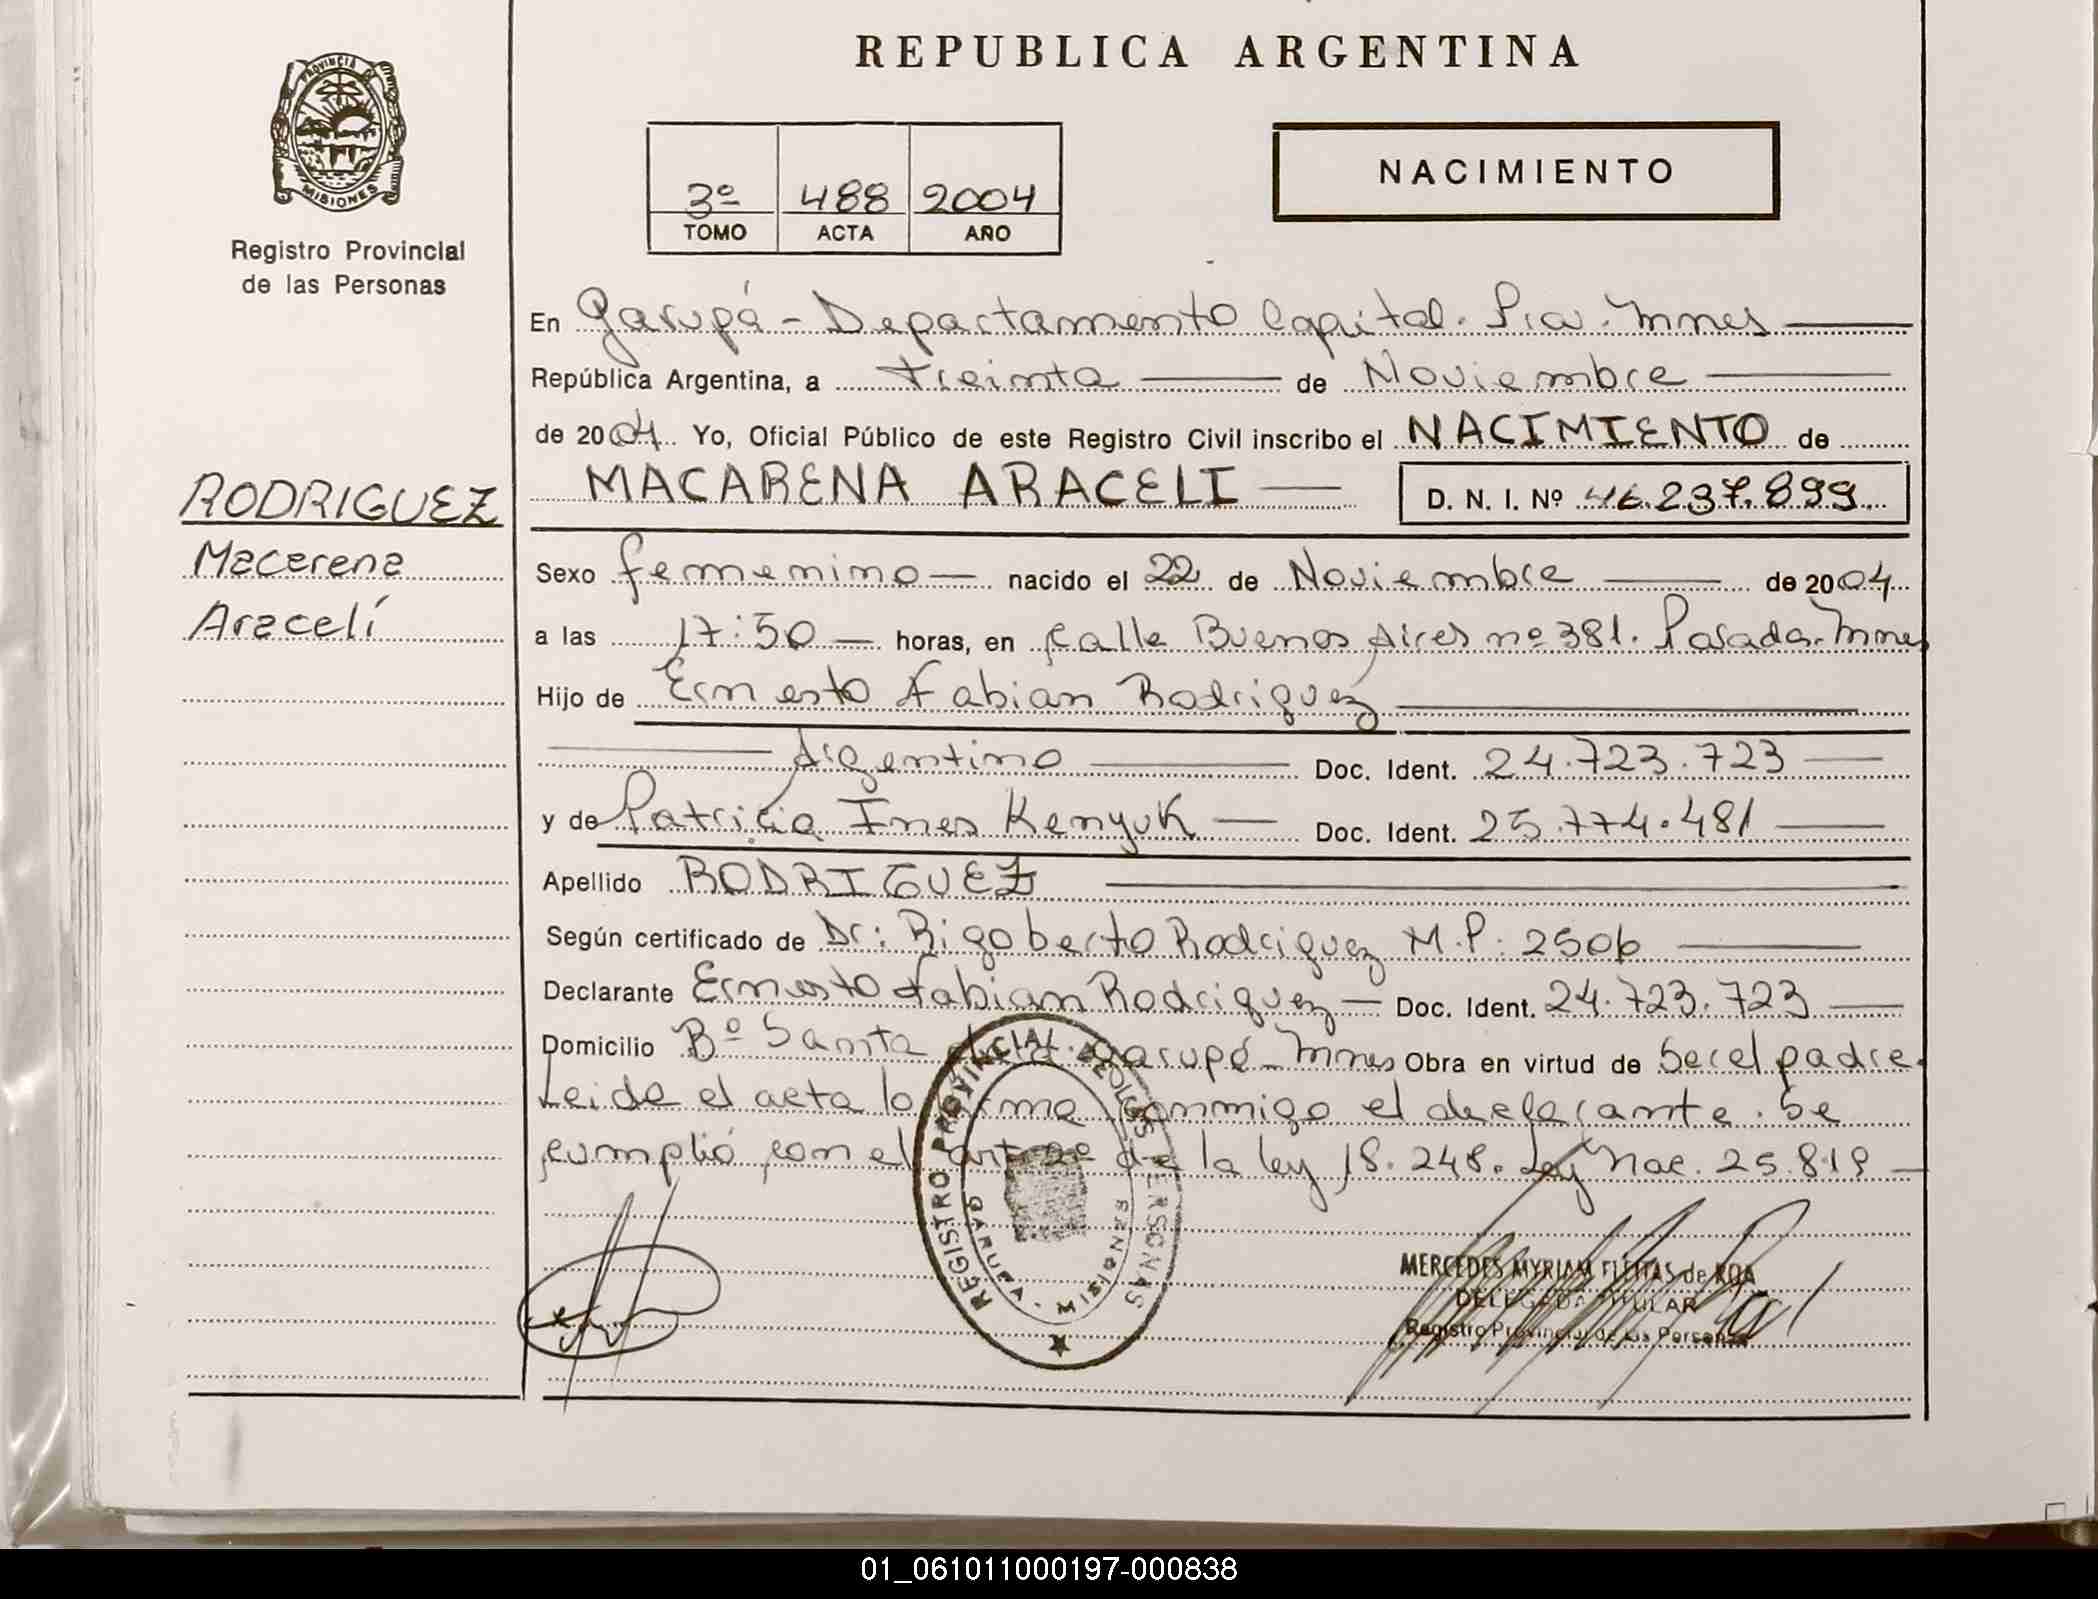 REPUBLICA ARGENTINA
PROVINCIA DE
MISIONES
Registro Provincial
de las Personas
3º 488 2004
TOMO ACTA AÑO
NACIMIENTO
En Garupá - Departamento Capital. Pcia. Mnes
República Argentina, a treinta de Noviembre
de 2004. Yo, Oficial Público de este Registro Civil inscribo el NACIMIENTO de
MACARENA ARACELI D. N. I. Nº 46.237.899
RODRIGUEZ
Macarena
Aracelí
Sexo femenino nacido el 22 de Noviembre de 2004
a las 17:50 horas, en calle Buenos Aires nº 381. Posadas. Mnes
Hijo de Ernesto Fabian Rodriguez
Argentino Doc. Ident. 24.723.723
y de Patricia Ines Kenyuk Doc. Ident. 25.774.481
Apellido RODRIGUEZ
Según certificado de Dr: Rigoberto Rodriguez M.P: 2506
Declarante Ernesto Fabian Rodriguez Doc. Ident. 24.723.723
Domicilio Bº Santa Garupá - Mnes Obra en virtud de ser el padre.
Leida el acta lo conmigo el declarante. Se
cumplió con el art 2º de la ley 18.248. Ley Nac. 25.819
REGISTRO PROVINCIAL DE LAS PERSONAS
GARUPA - MISIONES
MERCEDES MYRIAM FLEITAS de ROA
DELEGADA TITULAR
Registro Provincial de las Personas
01_061011000197-000838